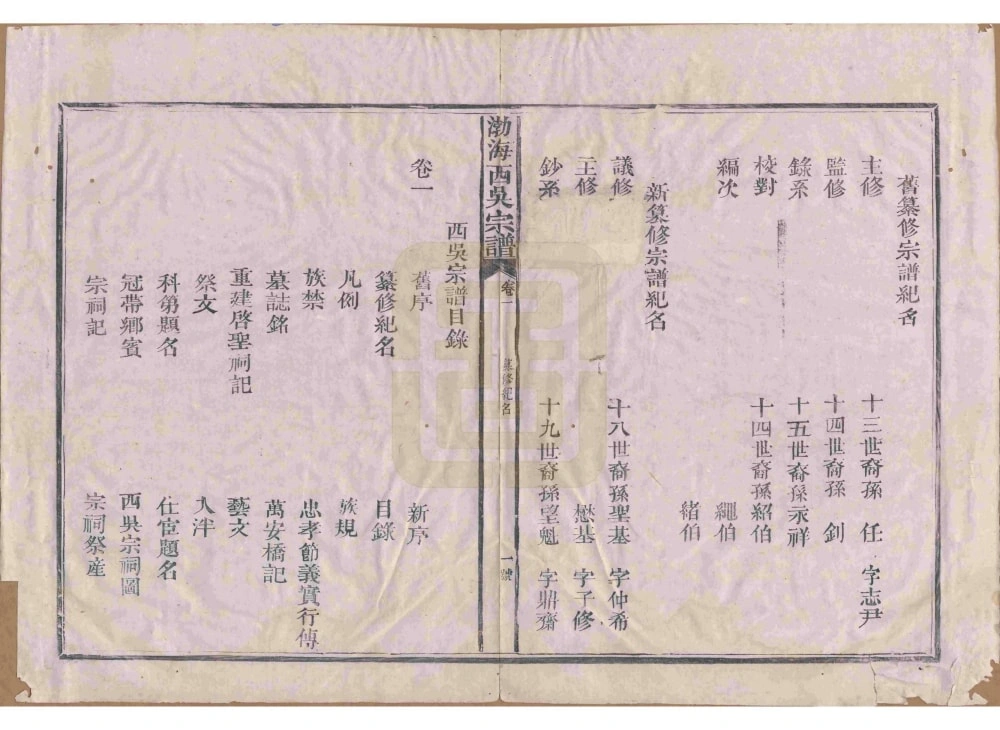 舊纂修宗譜紀名
主修 十三世裔孫 任 字志尹
監修 十四世裔孫 釗
錄系 十五世裔孫永祥
校對 十四世裔孫紹伯
編次 繩伯
緒伯
新纂修宗譜紀名
議修 十八世裔孫聖基 字仲希
主修 懋基 字子修
鈔系 十九世裔孫望魁 字鼎齋
渤海西吳宗譜 卷一 纂修紀名 一號
西吳宗譜目錄
卷一 舊序 新序
纂修紀名 目錄
凡例 族規
族禁 忠孝節義實行傳
墓誌銘 萬安橋記
重建啓聖祠記 藝文
祭文 入泮
科第題名 仕宦題名
冠帶鄉賓 西吳宗祠圖
宗祠記 宗祠祭產